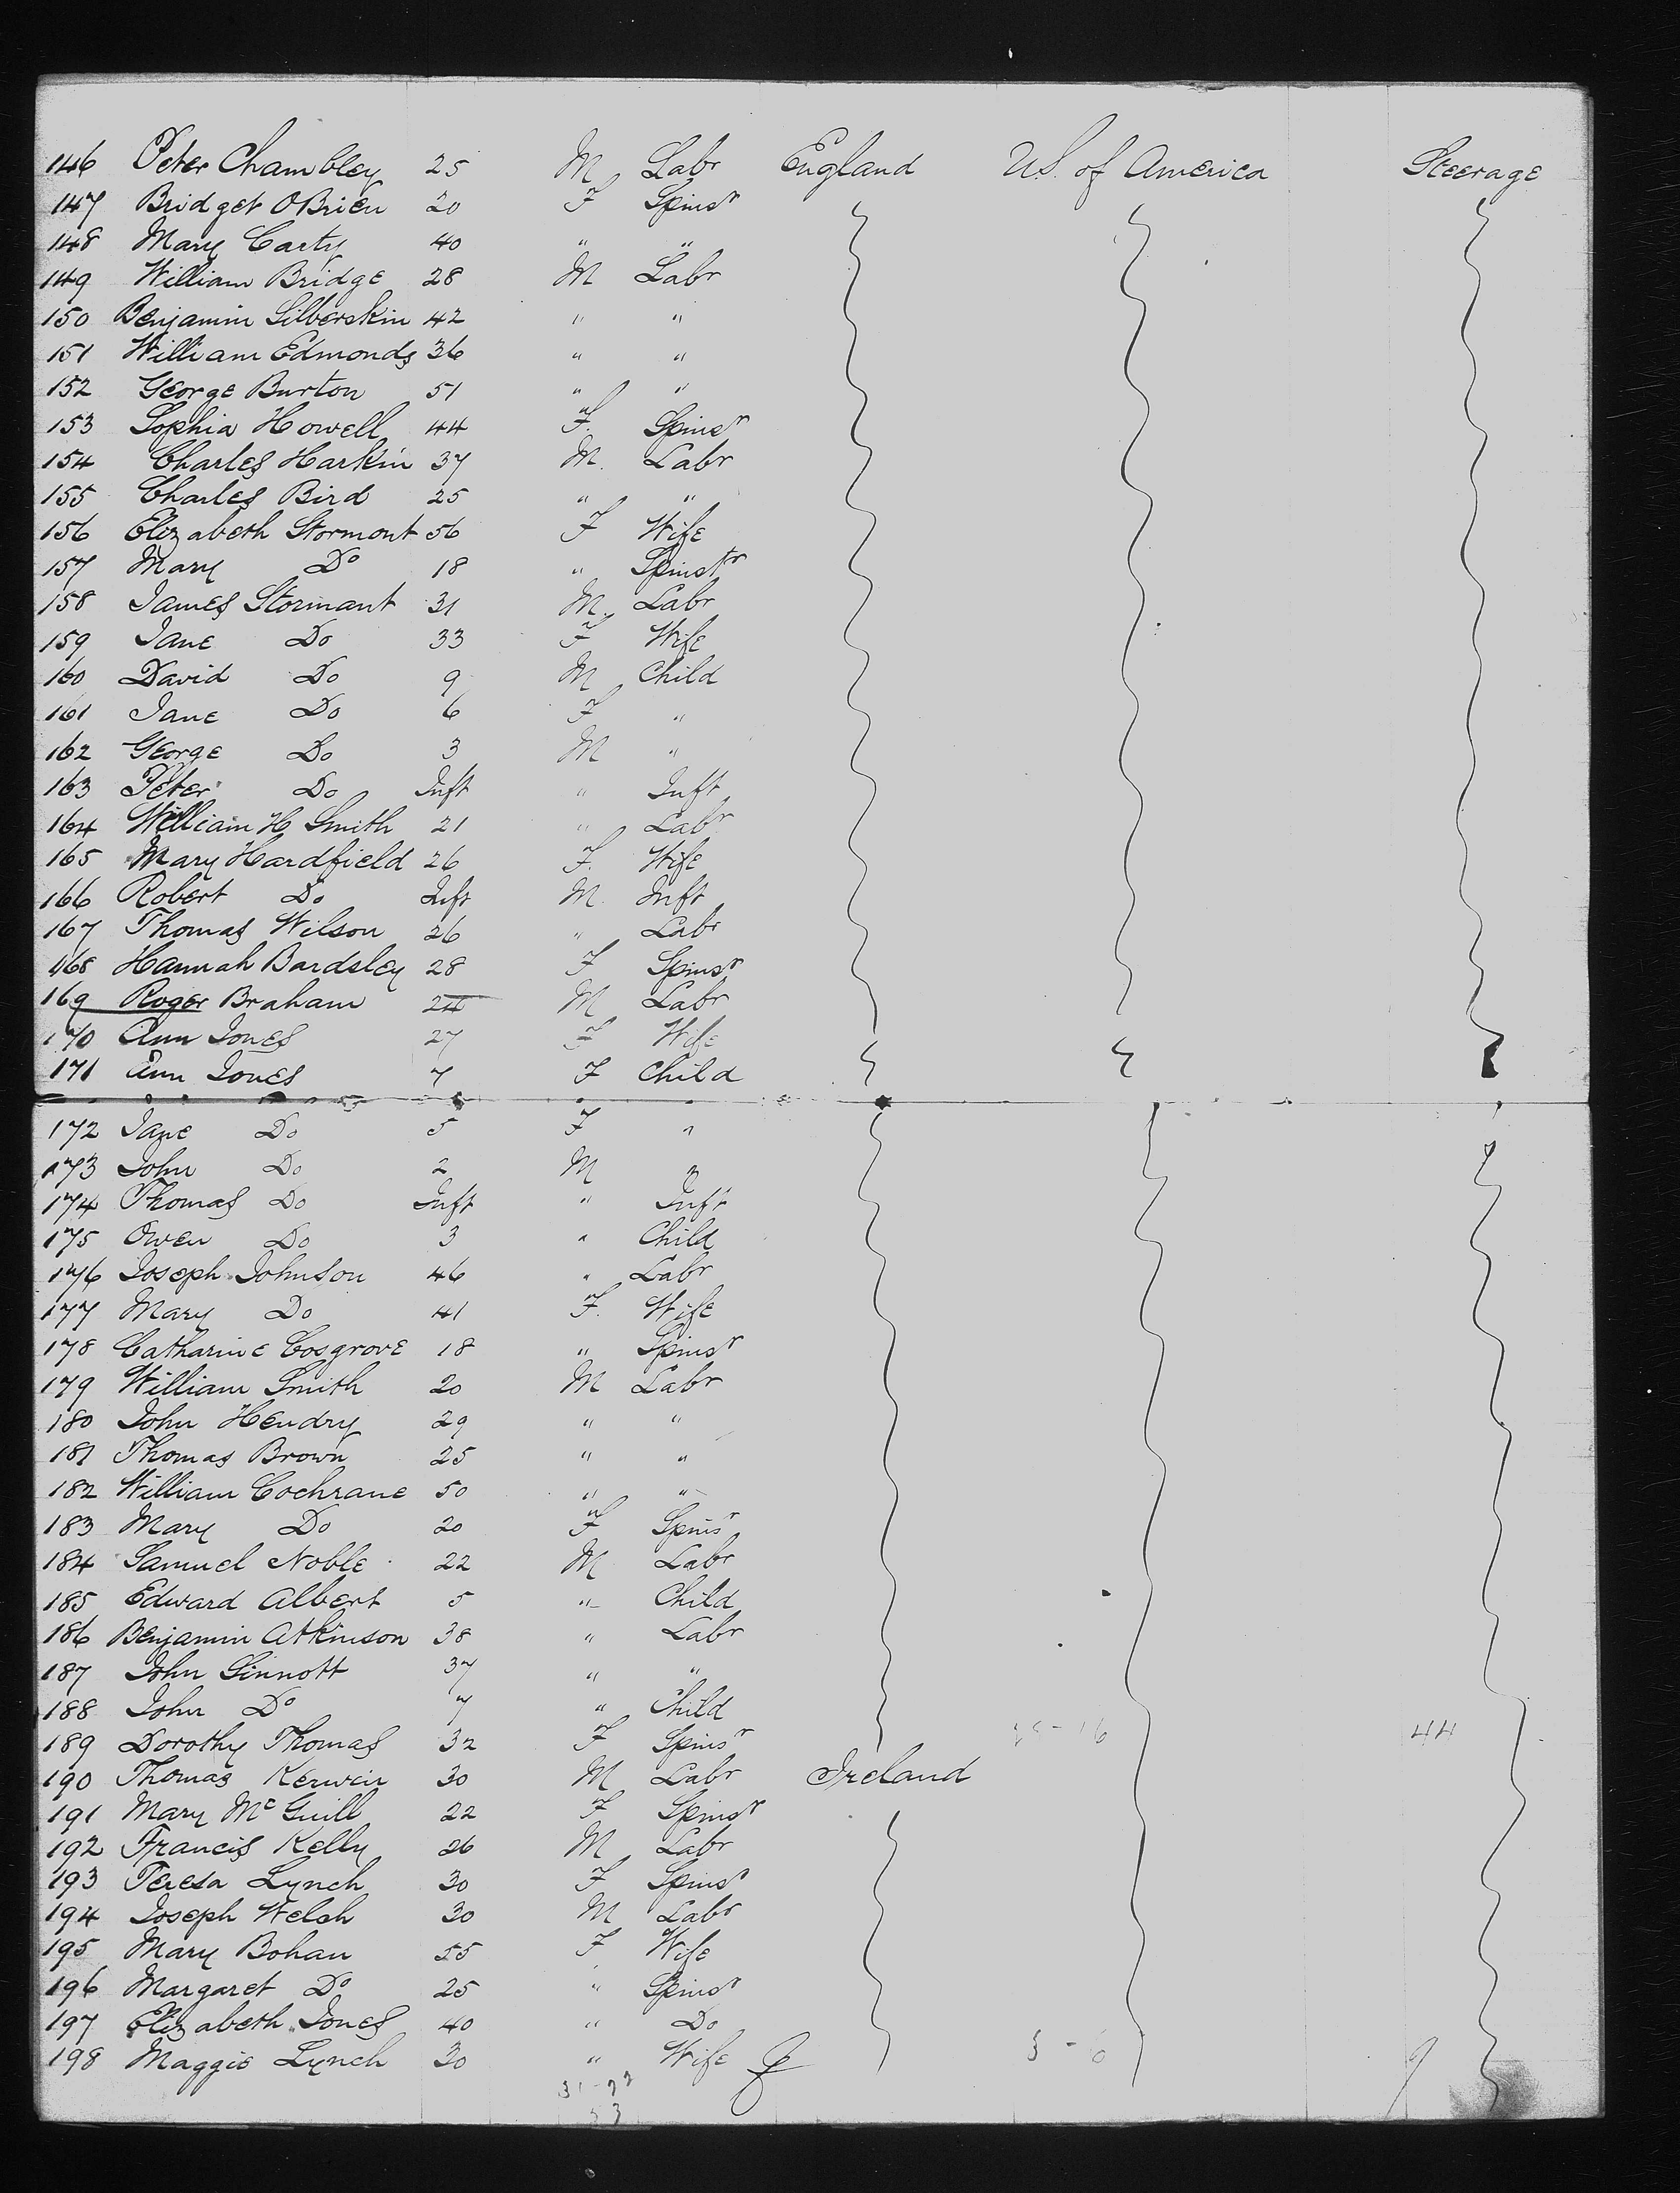 146 Peter Chambley 25 M Labr England U.S. of America Steerage
147 Bridget OBrien 20 F Spinsr
148 Mary Carty 40 " "
149 William Bridge 28 M Labr
150 Benjamin Silberskin 42 " "
151 William Edmonds 36 " "
152 George Burton 51 " "
153 Sophia Howell 44 F. Spinsr
154 Charles Harkin 37 M. Labr
155 Charles Bird 25 " "
156 Elizabeth Stormont 56 F Wife
157 Mary Do 18 " Spinstr
158 James Stormant 31 M. Labr
159 Jane Do 33 F Wife
160 David Do 9 M Child
161 Jane Do 6 F "
162 George Do 3 M "
163 Peter Do Inft " Inft
164 William H Smith 21 " Labr
165 Mary Hardfield 26 F. Wife
166 Robert Do Inft M. Inft
167 Thomas Wilson 26 " Labr
168 Hannah Bardsley 28 F Spinsr
169 Roger Braham 24 M Labr
170 Ann Jones 27 F Wife
171 Ann Jones 7 F Child
172 Jane Do 5 F "
173 John Do 2 M "
174 Thomas Do Inft " Inft
175 Owen Do 3 " Child
176 Joseph Johnson 46 " Labr
177 Mary Do 41 F. Wife
178 Catharine Cosgrove 18 " Spinsr
179 William Smith 20 M Labr
180 John Hendry 29 " "
181 Thomas Brown 25 " "
182 William Cochrane 50 " "
183 Mary Do 20 F Spinsr
184 Samuel Noble 22 M Labr
185 Edward Albert 5 " Child
186 Benjamin Atkinson 38 " Labr
187 John Sinnott 37 " "
188 John Do 7 " Child
189 Dorothy Thomas 32 F Spinsr 44
190 Thomas Kerwin 30 M Labr Ireland
191 Mary Mc Guill 22 F Spinsr
192 Francis Kelly 26 M Labr
193 Teresa Lynch 30 F Spinsr
194 Joseph Welsh 30 M Labr
195 Mary Bohan 55 F Wife
196 Margaret Do 25 " Spinsr
197 Elizabeth Jones 40 " Do
198 Maggie Lynch 30 " Wife 9